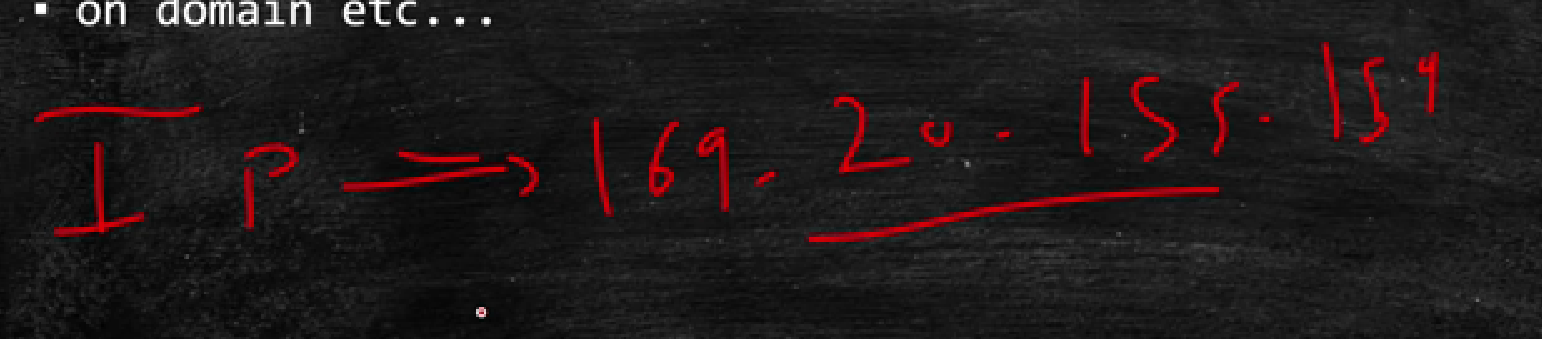 ▪ on domain etc...
IP => 169.20.155.159